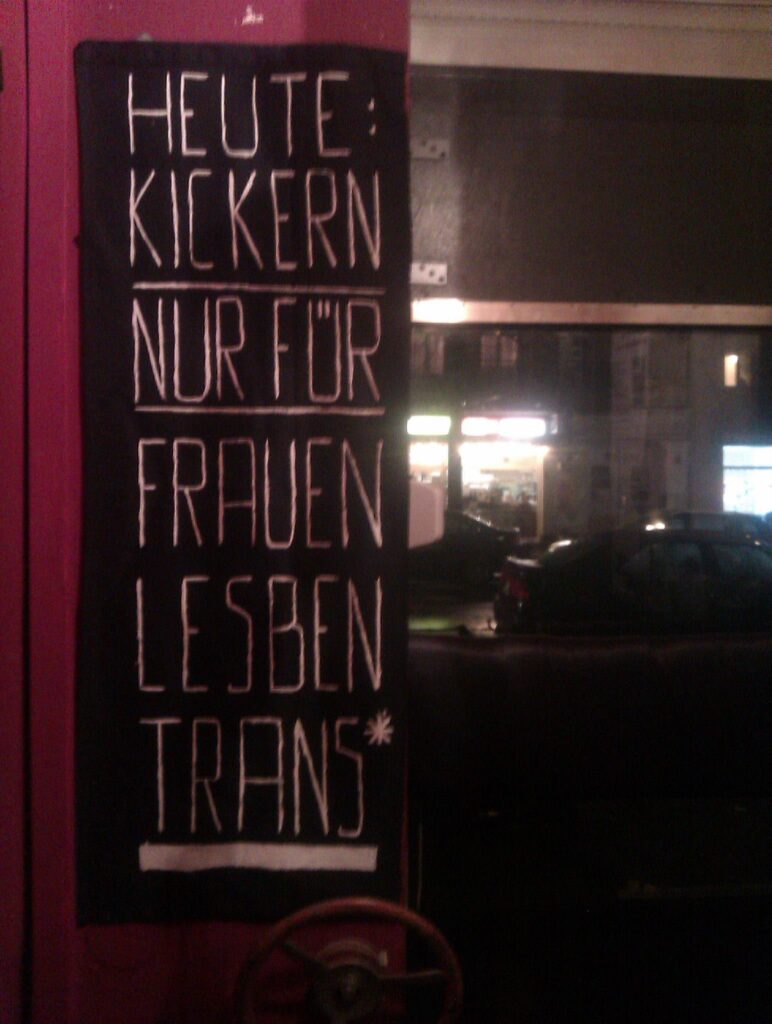 HEUTE:
KICKERN
NUR FÜR
FRAUEN
LESBEN
TRANS*